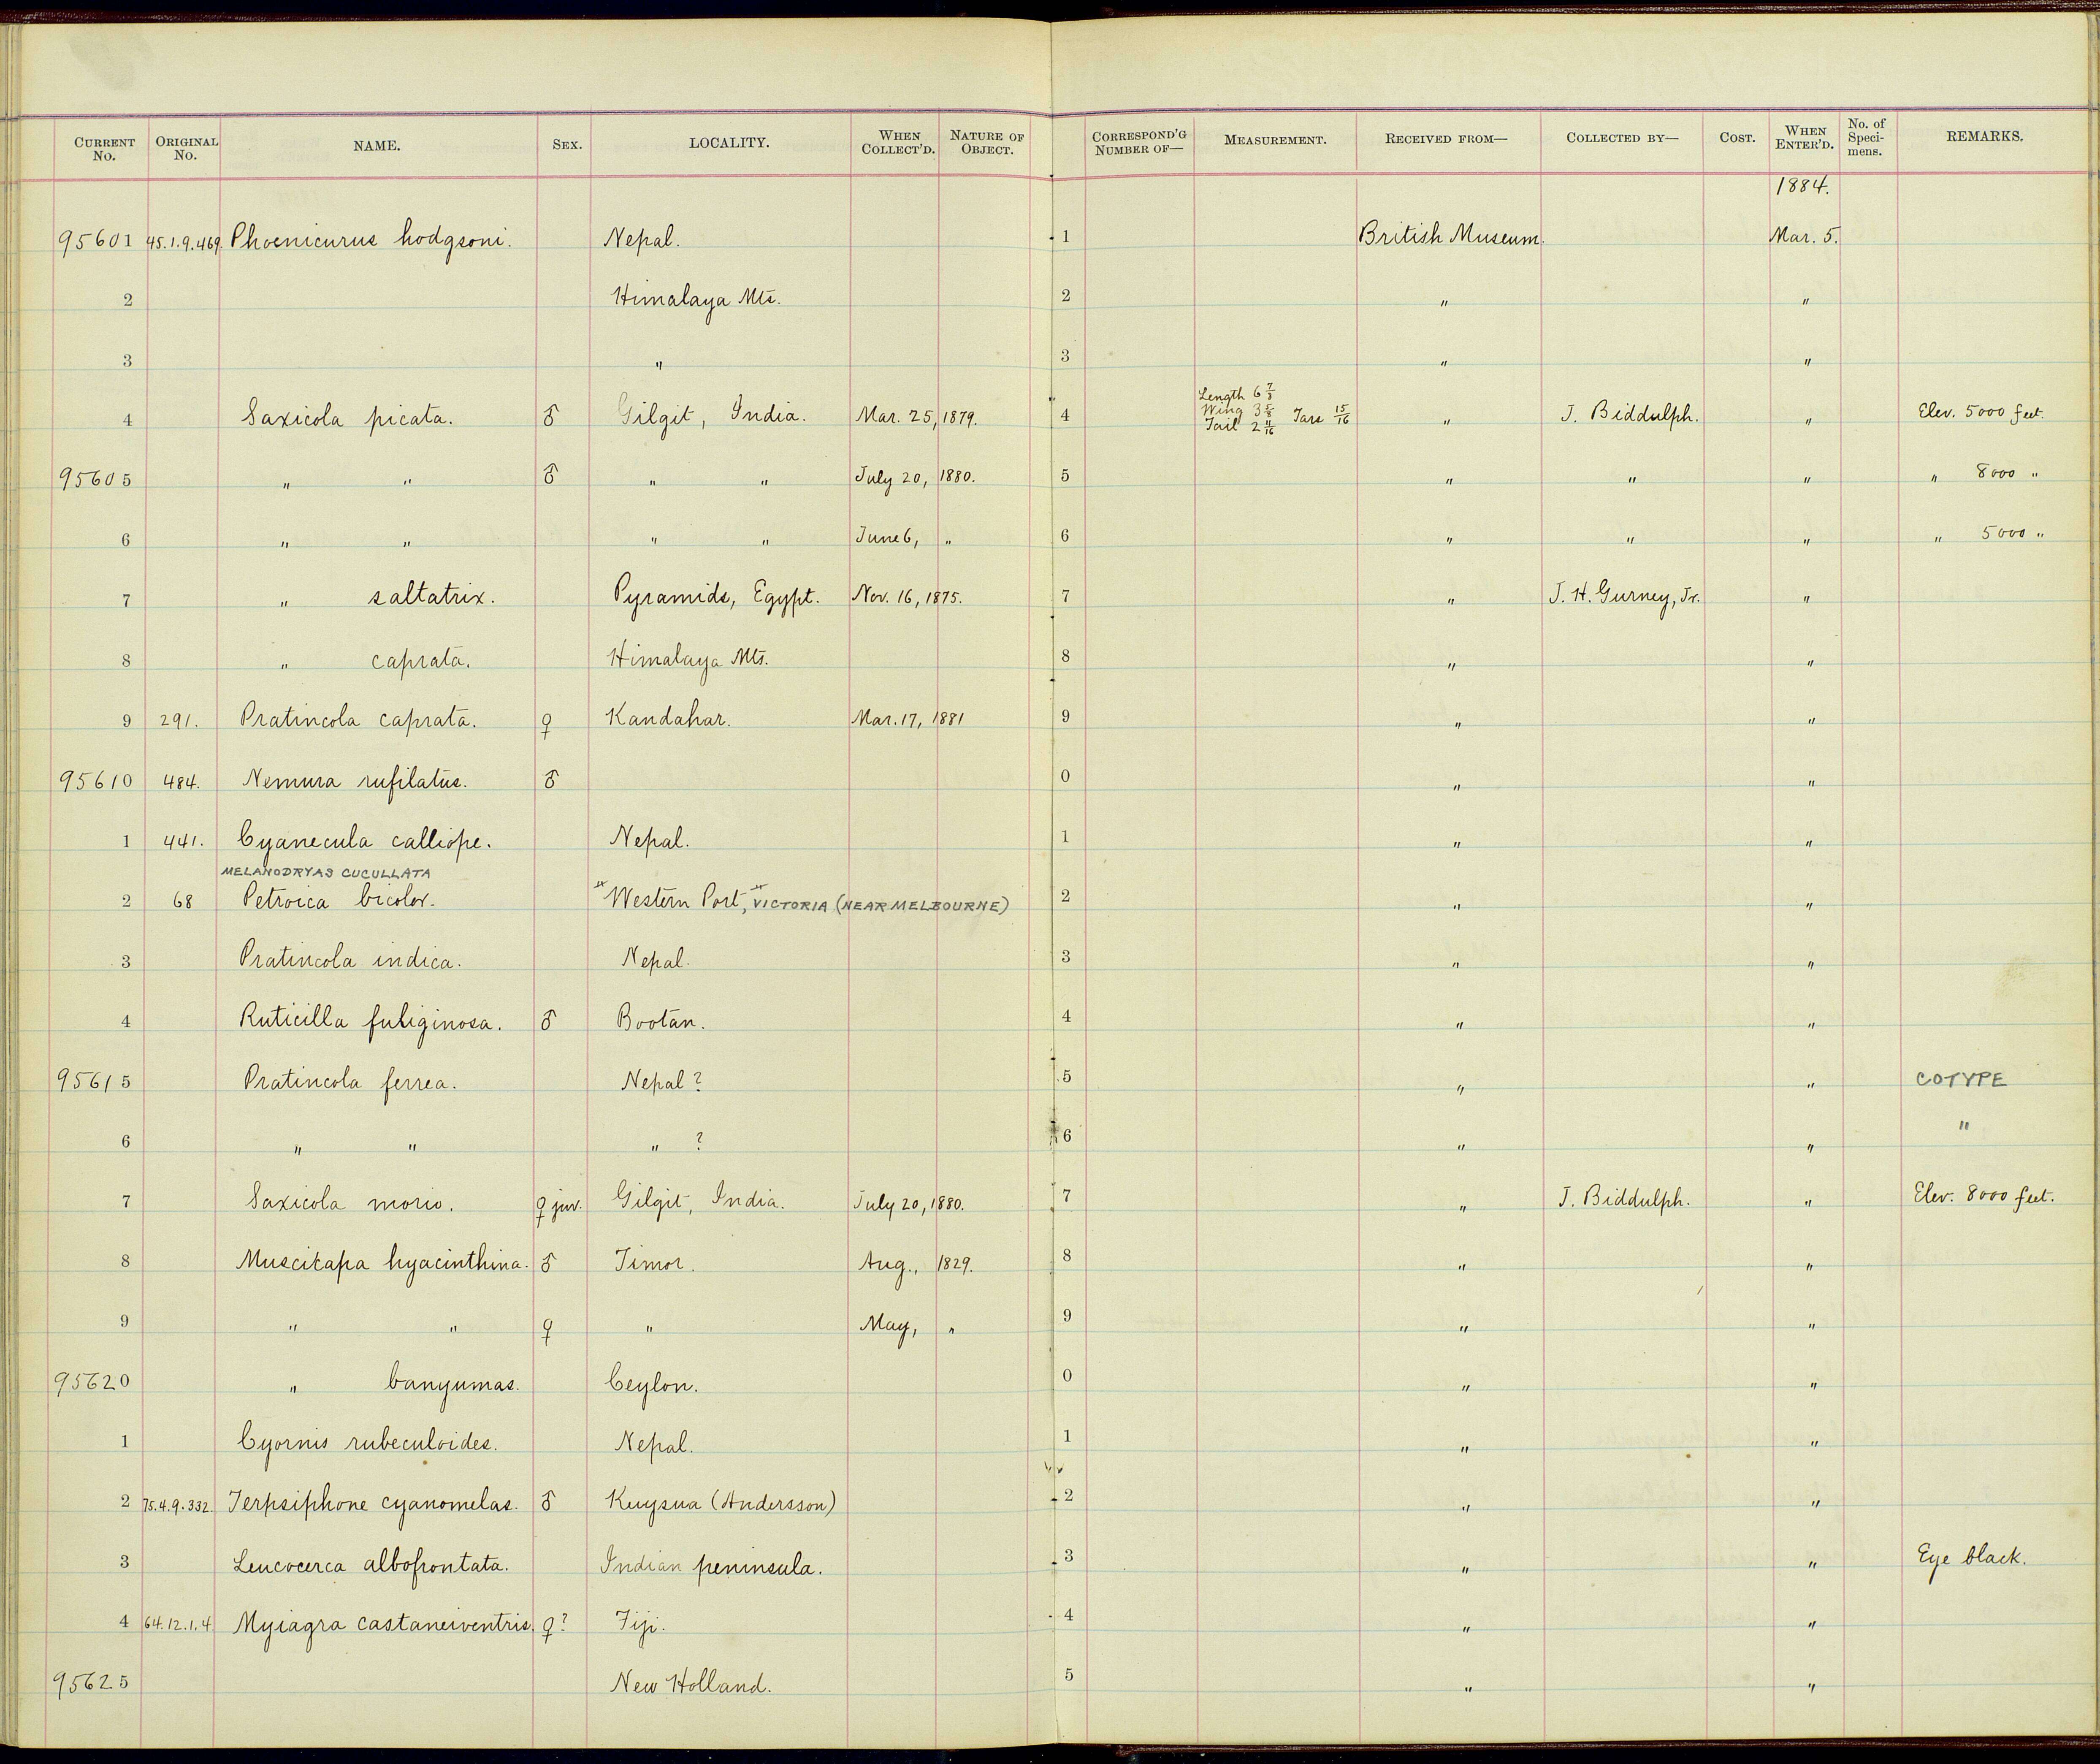 CURRENT No. ORIGINAL No. NAME. SEX. LOCALITY. WHEN COLLECT'D. NATURE OF OBJECT. CORRESPOND'G NUMBER OF— MEASUREMENT. RECEIVED FROM— COLLECTED BY— COST. WHEN ENTER'D. No. of Speci-mens. REMARKS.
1884.
95601 45.1.9.469. Phoenicurus hodgsoni. Nepal. 1 British Museum. Mar. 5.
2 Himalaya Mts. 2 " "
3 " 3 " "
4 Saxicola picata. ♂ Gilgit, India. Mar. 25, 1879. 4 Length 6 7/8 Wing 3 5/8 Tail 2 11/16 Tars 15/16 " J. Biddulph. " Elev. 5000 feet.
95605 " " ♂ " " July 20, 1880. 5 " " " " 8000 "
6 " " " " June 6, " 6 " " " " 5000 "
7 " saltatrix. Pyramids, Egypt. Nov. 16, 1875. 7 " J. H. Gurney, Jr. "
8 " caprata. Himalaya Mts. 8 " "
9 291. Pratincola caprata. ♀ Kandahar. Mar. 17, 1881 9 " "
95610 484. Nemura rufilatus. ♂ 0 " "
1 441. Cyanecula calliope. Nepal. 1 " "
MELANODRYAS CUCULLATA
2 68 Petroica bicolor. "Western Port," VICTORIA (NEAR MELBOURNE) 2 " "
3 Pratincola indica. Nepal. 3 " "
4 Ruticilla fuliginosa. ♂ Bootan. 4 " "
95615 Pratincola ferrea. Nepal? 5 " " COTYPE
6 " " " ? 6 " " "
7 Saxicola morio. ♀ juv. Gilgit, India. July 20, 1880. 7 " J. Biddulph. " Elev. 8000 feet.
8 Muscitapa hyacinthina. ♂ Timor. Aug., 1829. 8 " "
9 " " ♀ " May, " 9 " "
95620 " banyumas. Ceylon. 0 " "
1 Cyornis rubeculoides. Nepal. 1 " "
2 75.4.9.332. Terpsiphone cyanomelas. ♂ Kuysua (Andersson) 2 " "
3 Leucocerca albofrontata. Indian peninsula. 3 " " Eye black.
4 64.12.1.4 Myiagra castaneiventris. ♀? Fiji. 4 " "
95625 New Holland. 5 " "